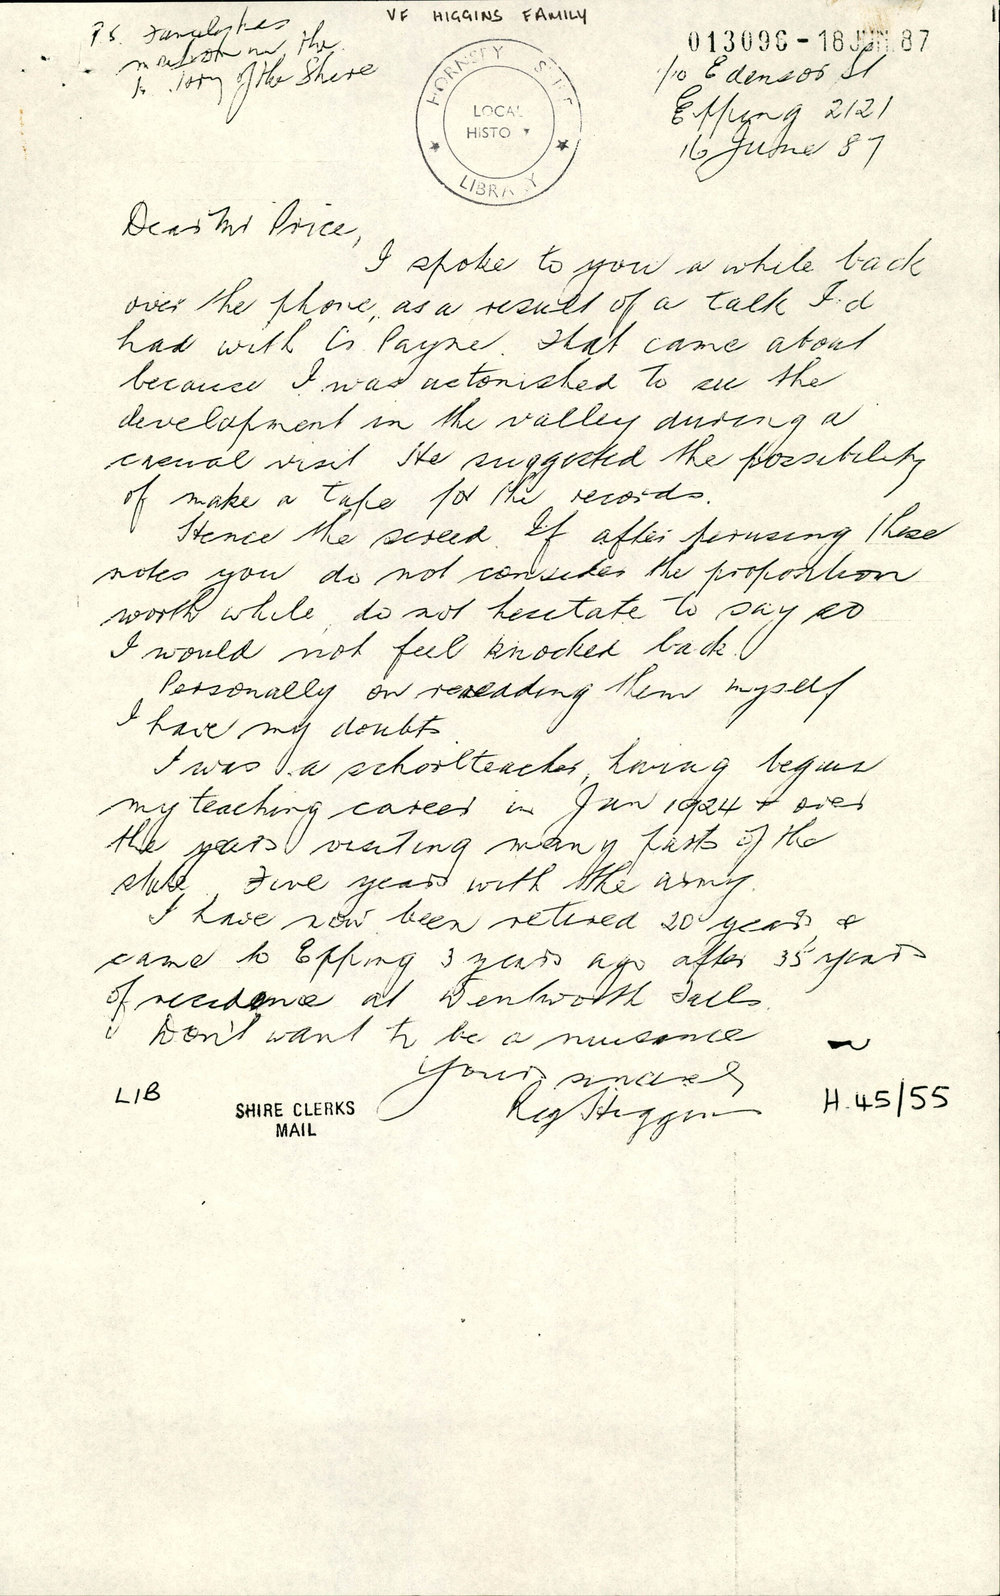 VF HIGGINS FAMILY
P.S. Family has
mention in the
history of the Shire
HORNSBY SHIRE
LOCAL
HISTORY
LIBRARY
013096-18 JUN 87
Edensor St
Epping 2121
16 June 87
Dear Mr Price,
I spoke to you a while back
over the phone, as a result of a talk I'd
had with Cr Payne. That came about
because I was astonished to see the
development in the valley during a
casual visit He suggested the possibility
of make a tape for the records.
Hence the screed. If after perusing these
notes you do not consider the proposition
worth while, do not hesitate to say so
I would not feel knocked back.
Personally on rereading them myself
I have my doubts.
I was a schoolteacher, having begun
my teaching career in Jan 1924 + over
the years visiting many parts of the
state. Five years with the army.
I have now been retired 20 years, &
came to Epping 3 years ago after 35 years
of residence at Wentworth Falls.
Don't want to be a nuisance
Yours sincerely
Reg Higgins
LIB
SHIRE CLERKS
MAIL
H.45/55